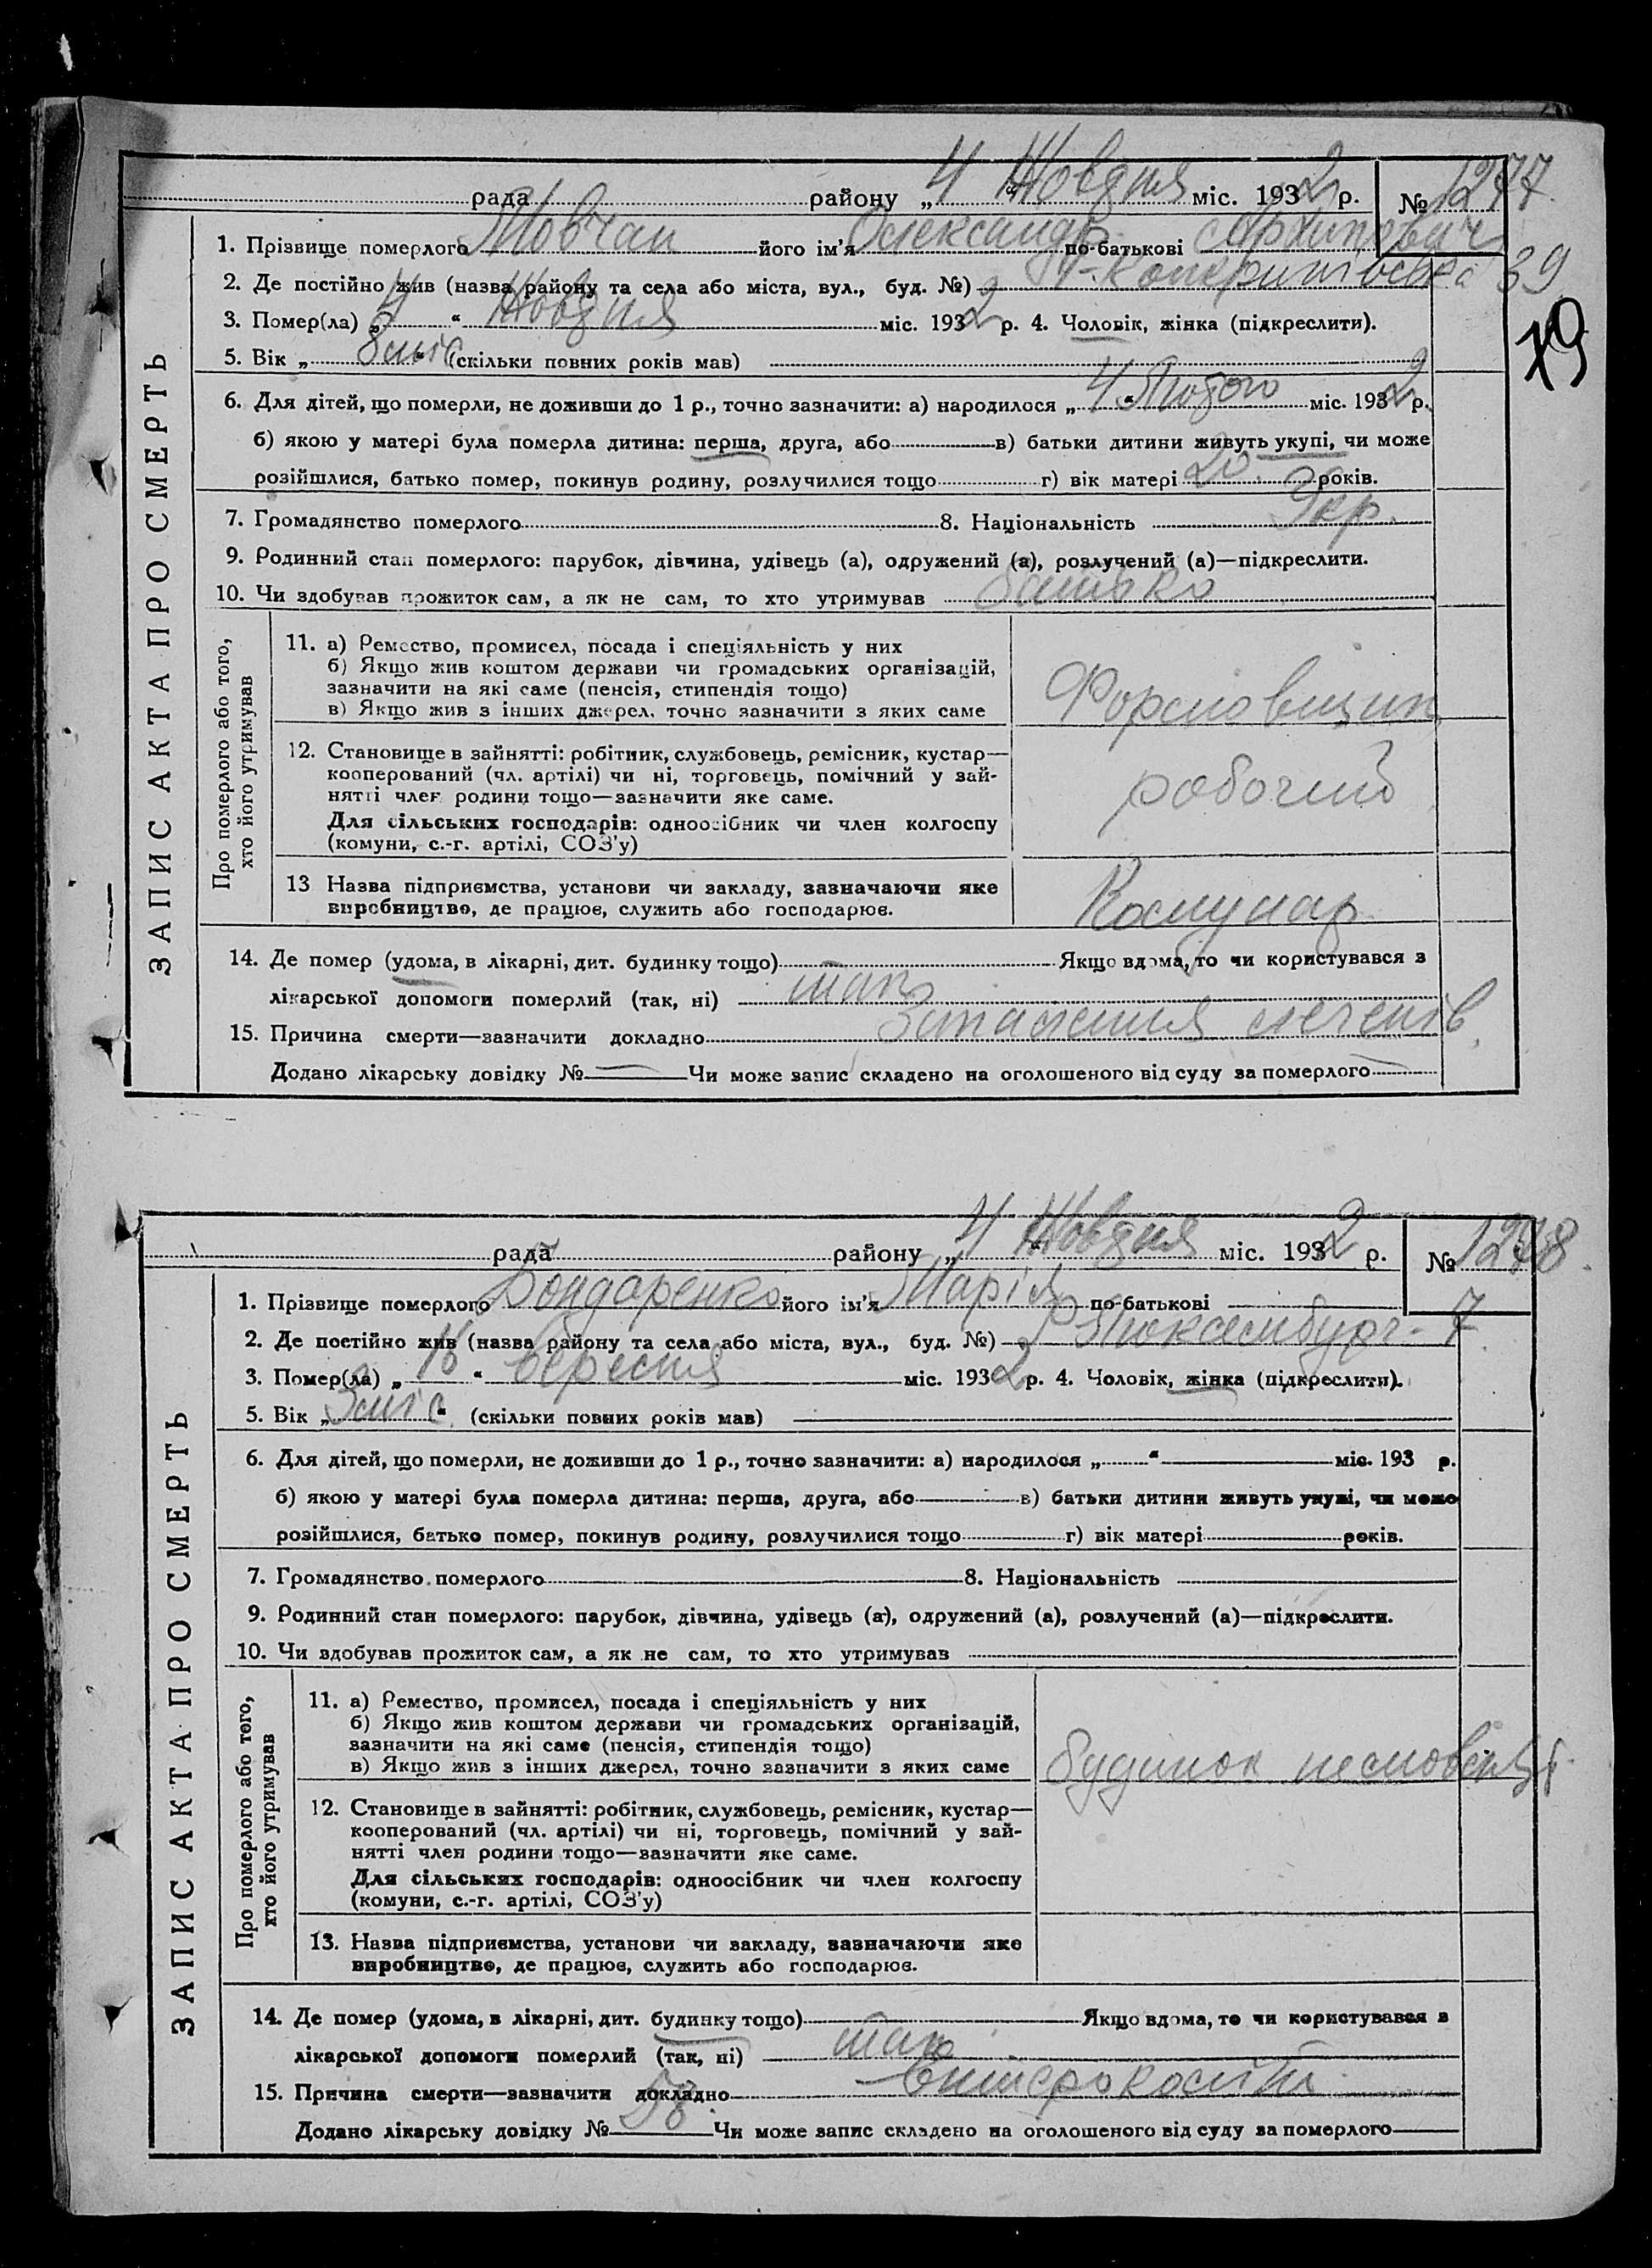 рада району „4“ Жовтня міс. 1932 р. № 1277
1. Прізвище померлого Мовчан його ім'я Олександр по-батькові Архипович
2. Де постійно жив (назва району та села або міста, вул., буд. №) 39
3. Помер(ла) „4“ Жовтня міс. 1932 р. 4. Чоловік, жінка (підкреслити).
5. Вік „8 міс“ (скільки повних років мав)
19
6. Для дітей, що померли, не доживши до 1 р., точно зазначити: а) народилося „4“ Лютого міс. 1932 р.
б) якою у матері була померла дитина: перша, друга, або в) батьки дитини живуть укупі, чи може
розійшлися, батько помер, покинув родину, розлучилися тощо г) вік матері 20 років.
7. Громадянство померлого 8. Національність Укр.
9. Родинний стан померлого: парубок, дівчина, удівець (а), одружений (а), розлучений (а)—підкреслити.
10. Чи здобував прожиток сам, а як не сам, то хто утримував батько
ЗАПИС АКТА ПРО СМЕРТЬ
Про померлого або того,
хто його утримував
11. а) Ремество, промисел, посада і спеціяльність у них
б) Якщо жив коштом держави чи громадських організацій,
зазначити на які саме (пенсія, стипендія тощо)
в) Якщо жив з інших джерел, точно зазначити з яких саме
Формовщик
12. Становище в зайнятті: робітник, службовець, ремісник, кустар—
кооперований (чл. артілі) чи ні, торговець, помічний у зай-
нятті член родини тощо—зазначити яке саме.
Для сільських господарів: одноосібник чи член колгоспу
(комуни, с.-г. артілі, СОЗ'у)
робочий
13 Назва підприємства, установи чи закладу, зазначаючи яке
виробництво, де працює, служить або господарює.
Комунар
14. Де помер (удома, в лікарні, дит. будинку тощо) Якщо вдома, то чи користувався з
лікарської допомоги померлий (так, ні) так
15. Причина смерти—зазначити докладно Запалення легенів
Додано лікарську довідку № — Чи може запис складено на оголошеного від суду за померлого —
рада району „4“ Жовтня міс. 1932 р. № 1278
1. Прізвище померлого Бондаренко його ім'я Марія по-батькові
2. Де постійно жив (назва району та села або міста, вул., буд. №) Р Люксембург 7
3. Помер(ла) „16“ вересня міс. 1932 р. 4. Чоловік, жінка (підкреслити).
5. Вік „3 міс“ (скільки повних років мав)
6. Для дітей, що померли, не доживши до 1 р., точно зазначити: а) народилося „ “ міс. 193 р.
б) якою у матері була померла дитина: перша, друга, або в) батьки дитини живуть укупі, чи може
розійшлися, батько помер, покинув родину, розлучилися тощо г) вік матері років.
7. Громадянство померлого 8. Національність
9. Родинний стан померлого: парубок, дівчина, удівець (а), одружений (а), розлучений (а)—підкреслити.
10. Чи здобував прожиток сам, а як не сам, то хто утримував
ЗАПИС АКТА ПРО СМЕРТЬ
Про померлого або того,
хто його утримував
11. а) Ремество, промисел, посада і спеціяльність у них
б) Якщо жив коштом держави чи громадських організацій,
зазначити на які саме (пенсія, стипендія тощо)
в) Якщо жив з інших джерел, точно зазначити з яких саме
будинок немовляці
12. Становище в зайнятті: робітник, службовець, ремісник, кустар—
кооперований (чл. артілі) чи ні, торговець, помічний у зай-
нятті член родини тощо—зазначити яке саме.
Для сільських господарів: одноосібник чи член колгоспу
(комуни, с.-г. артілі, СОЗ'у)
13. Назва підприємства, установи чи закладу, зазначаючи яке
виробництво, де працює, служить або господарює.
14. Де помер (удома, в лікарні, дит. будинку тощо) Якщо вдома, то чи користувався з
лікарської допомоги померлий (так, ні) так
15. Причина смерти—зазначити докладно Ентероколіт
Додано лікарську довідку № 58 Чи може запис складено на оголошеного від суду за померлого